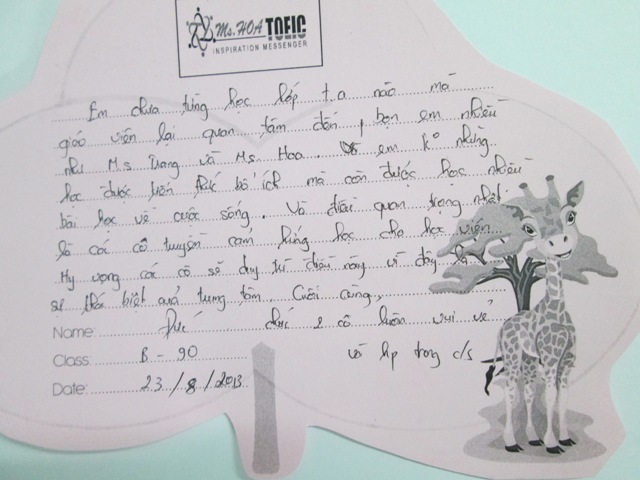 Ms. HOA TOEIC
INSPIRATION MESSENGER
Em chưa từng học lớp t.a nào mà
giáo viên lại quan tâm đến bọn em nhiều
như Ms Trang và Ms. Hoa. em ko những
học được kiến thức bổ ích mà còn được học nhiều
bài học về cuộc sống. Và điều quan trọng nhất
là các cô truyền cảm hứng học cho học viện
Hy vọng các cô sẽ duy trì điều này vì đây là
sự khác biệt của trung tâm. Cuối cùng,
Name: Đức chúc 2 cô luôn vui vẻ
Class: B - 90 và hp trong c/s
Date: 23/8/2013